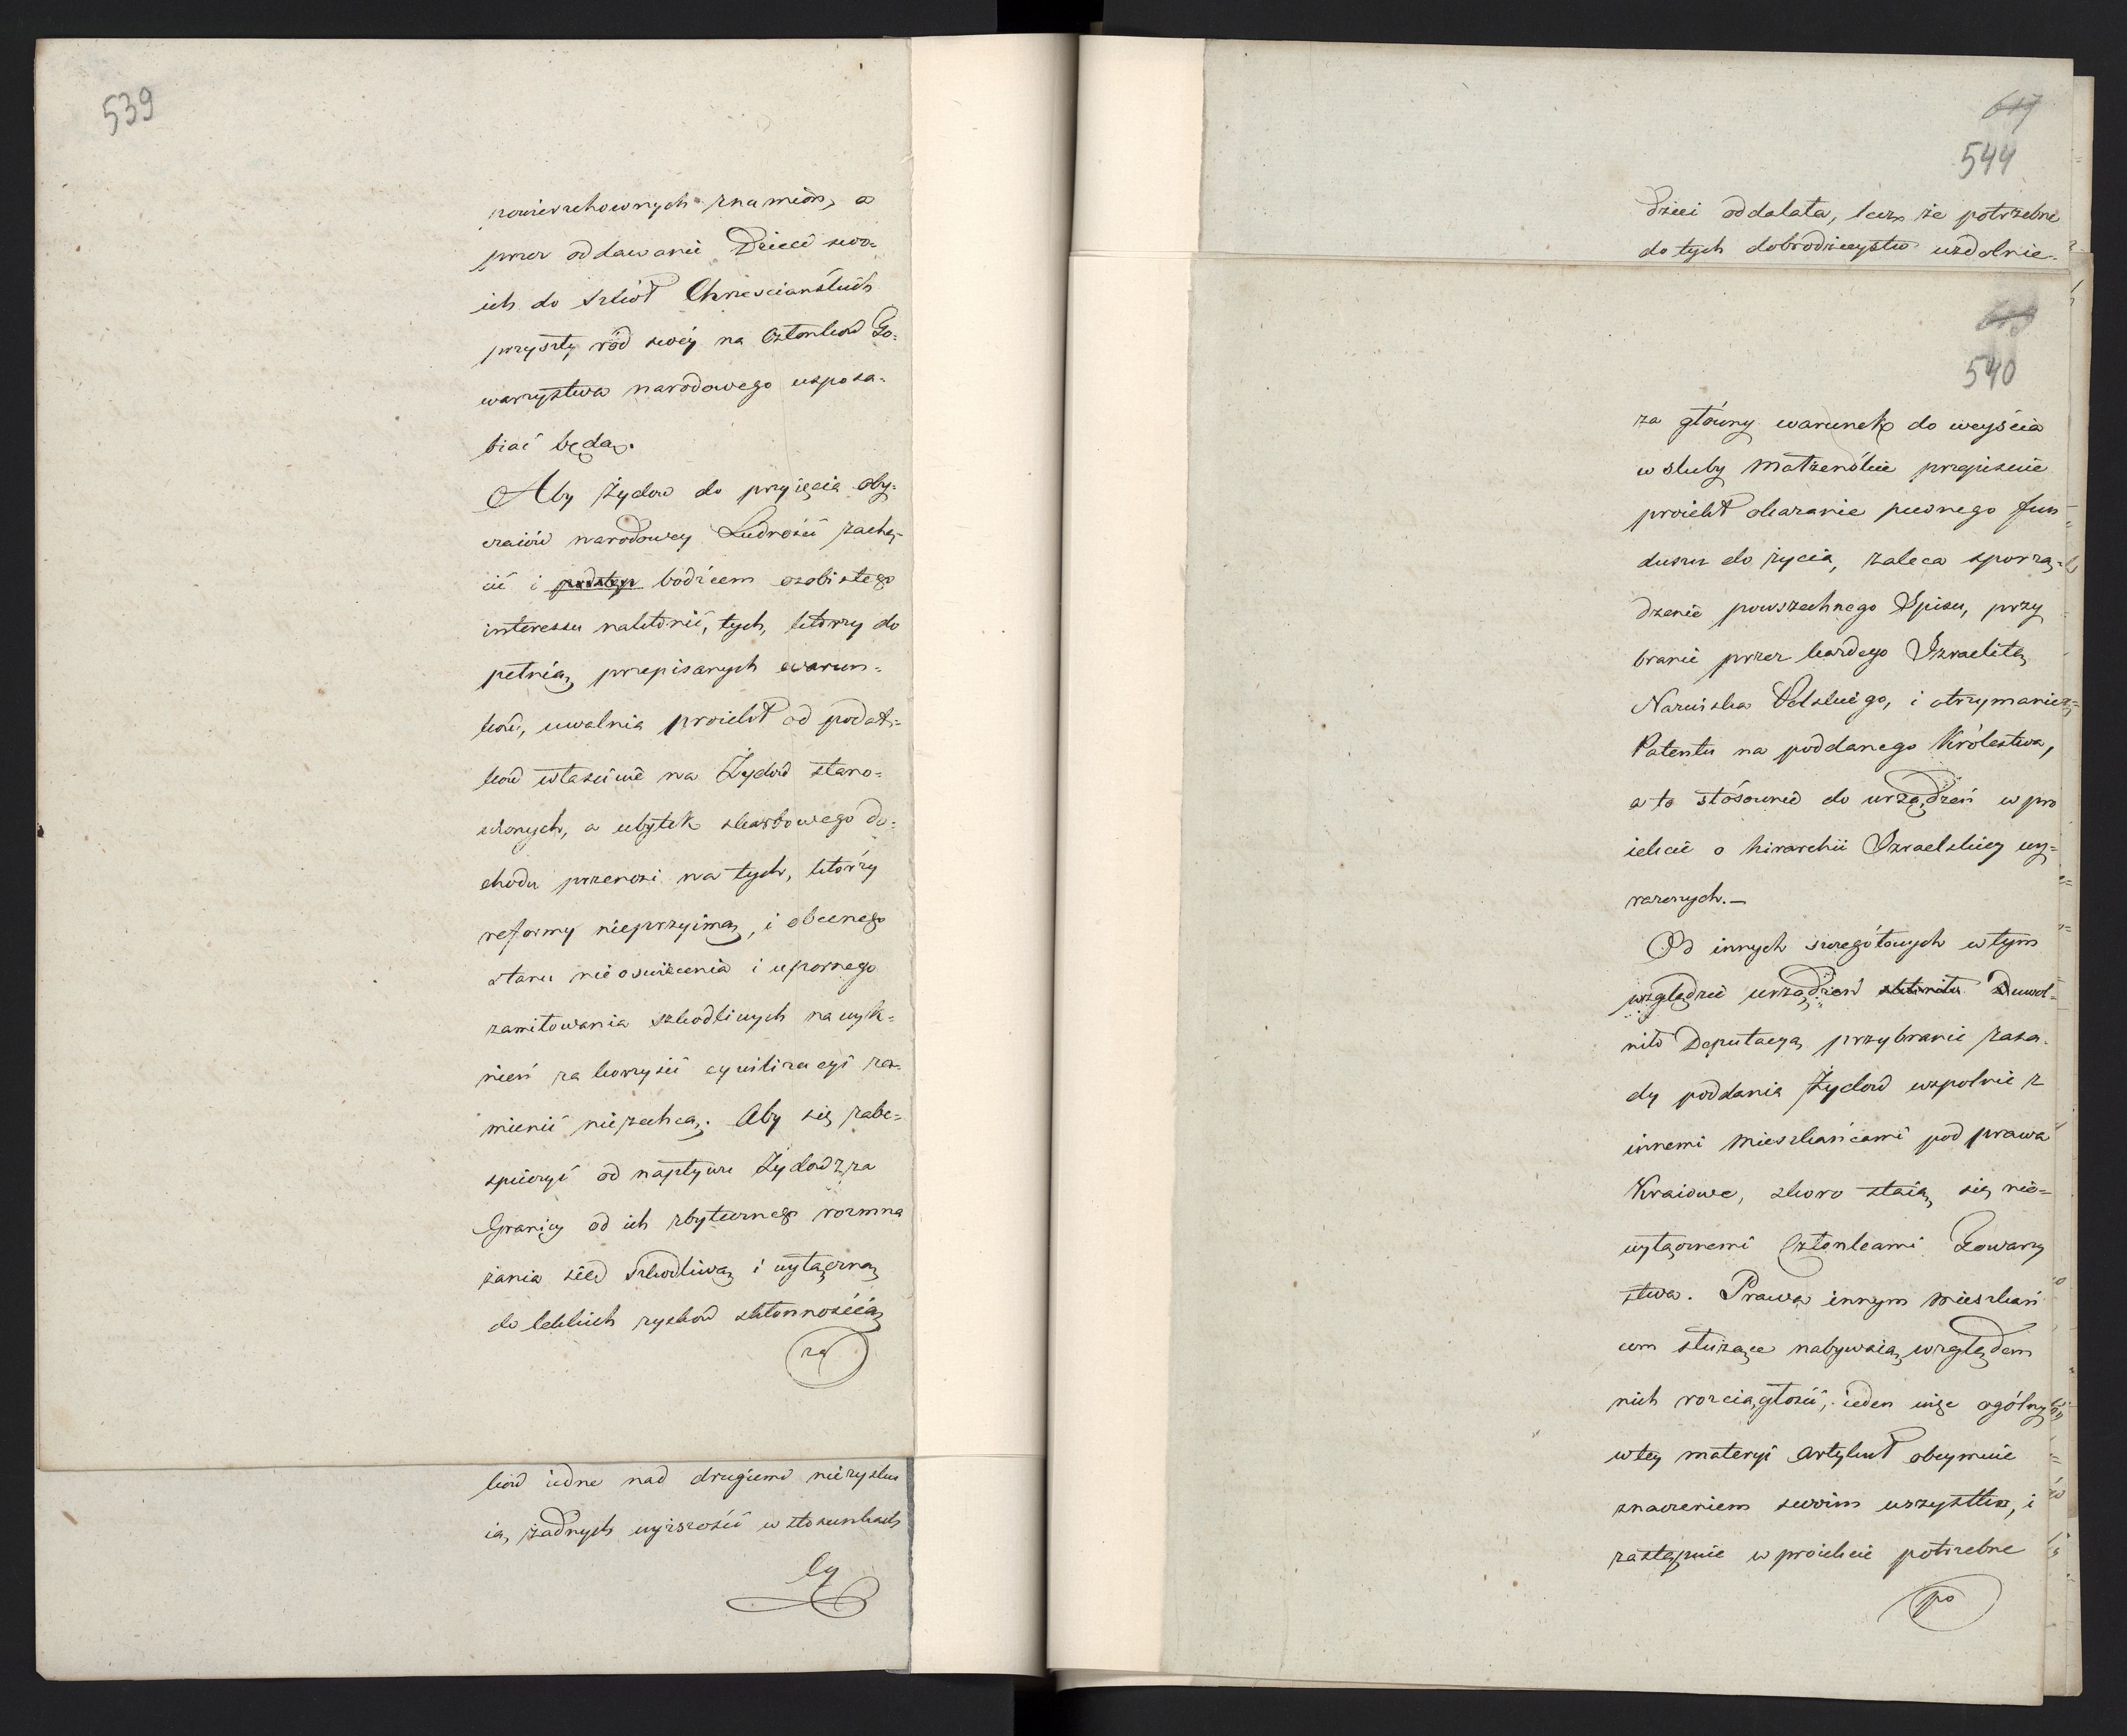 539
powierzchownych znamion, a
przez oddawanie Dzieci swo=
ich do szkół Chrzescianskich
przyszły ród swóy na Członków To=
warzystwa narodowego usposa=
biać będą.
Aby Żydow do przyięcia oby=
czaiów narodowey Ludności zachę=
cić i bodźcem osobistego
interessu nakłonić, tych, którzy do
pełnią przepisanych warun=
ków, uwalnia proiekt od podat=
ków właściwie na Żydów stano=
wionych, a ubytek skarbowego do=
chodu przenosi na tych, którzy
reformy nieprzyimą, i obecnego
stanu nieoswiecenia i upornego
zamiłowania szkodliwych nawyk=
nień za korzyści cywilizacyi za=
mienić niezechcą. Aby się zabe=
spieczyć od napływu Żydów z za
Granicy od ich zbytecznego rozmna
żania się szkodliwą i wyłączną
do lekkich zysków skłonnością
za
ków iedne nad drugiemi niezysku
ią żadnych wyższości w stosunkach
Cy
617
544
dzieci oddalała, lecz że potrzebne
do tych dobrodzieystw uzdolnie=
540
za główny warunek do weyścia
w sluby Małżeńskie przepisuie
proiekt okazanie pewnego fun
duszu do życia, zaleca sporzą=
dzenie powszechnego Spisu, przy
branie przez każdego Izraelitę
Nazwiska Polskiego, i otrzymanie
Patentu na poddanego Królestwa,
a to stósownie do urządzeń w pro
iekcie o hirarchii Izraelskiey wy=
rażonych.—
Od innych szczegółowych w tym
względzie urządzeń uwol=
niło Deputacyą przybranie zasa=
dy poddania Żydów wspolnie z
innemi Mieszkańcami pod prawa
Kraiowe, skoro staią się nie=
wyłącznemi Członkami Towarzy
stwa. Prawa innym Mieszkań
com służące nabywaią względem
nich rozciągłości, ieden więc ogólny
w tey materyi Artykuł obeymuie
znaczeniem swoim wszystko, i
zastępuie w proiekcie potrzebne
po